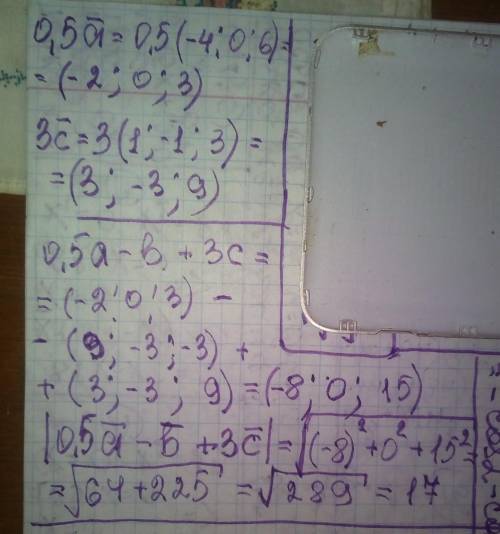 0,5a̅ = 0,5(-4; 0; 6) =
= (-2; 0; 3)
3c̅ = 3(1; -1; 3) =
= (3; -3; 9)
0,5a - b + 3c =
= (-2; 0; 3) -
- (9; -3; -3) +
+ (3; -3; 9) = (-8; 0; 15)
|0,5a̅ - b̅ + 3c̅| = √((-8)² + 0² + 15²) =
= √(64 + 225) = √(289) = 17